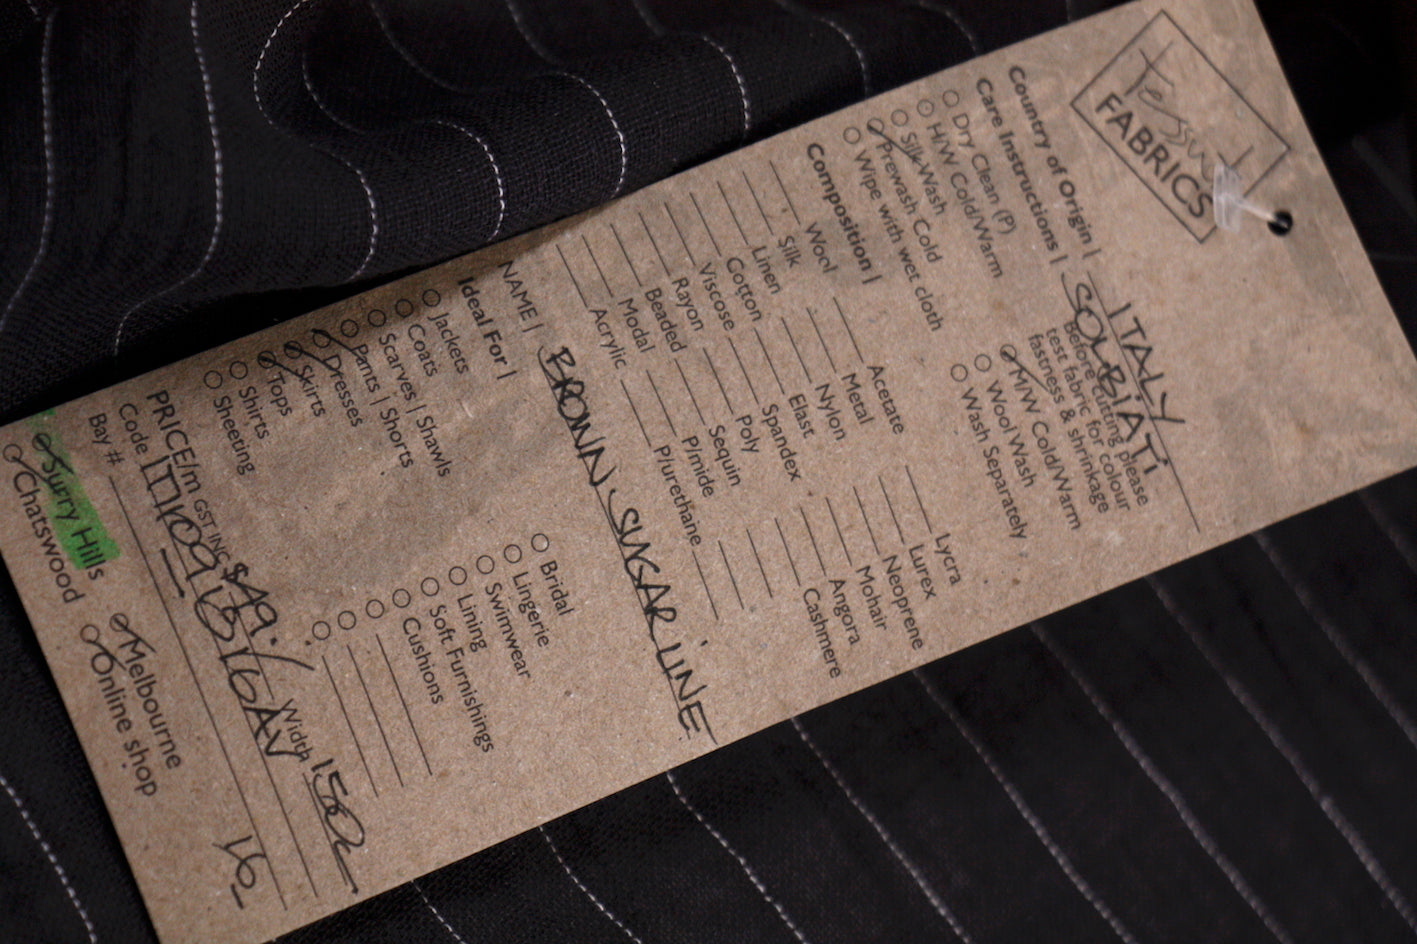 Tessuti
FABRICS
Country of Origin | ITALY
SOLBIATI
Care Instructions |
Before cutting please
test fabric for colour
fastness & shrinkage
Dry Clean (P)
H/W Cold/Warm
Silk Wash
Prewash Cold
Wipe with wet cloth
M/W Cold/Warm
Wool Wash
Wash Separately
Composition |
Wool
Silk
Linen
Cotton
Viscose
Rayon
Beaded
Modal
Acrylic
Acetate
Metal
Nylon
Elast
Spandex
Poly
Sequin
P/mide
P/urethane
Lycra
Lurex
Neoprene
Mohair
Angora
Cashmere
NAME | BROWN SUGAR LINE
Ideal For |
Jackets
Coats
Scarves | Shawls
Pants | Shorts
Dresses
Skirts
Tops
Shirts
Sheeting
Bridal
Lingerie
Swimwear
Lining
Soft Furnishings
Cushions
PRICE/m GST INC $49. Width 150
Code
Bay # 16
Surry Hills
Chatswood
Melbourne
Online shop